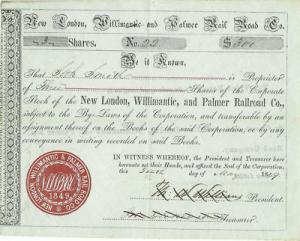 New London, Willimantic and Palmer Rail Road Co.
Shares. No. 22. $300
Be it Known,
That Seth Smith is Proprietor
of Three Shares of the Corporate
Stock of the New London, Willimantic, and Palmer Railroad Co.,
subject to the Bye-Laws of the Corporation, and transferable by an
assignment thereof on the Books of the said Corporation, or by any
conveyance in writing recorded on said Books.
IN WITNESS WHEREOF, the President and Treasurer
have hereunto set their Hands, and affixed the Seal of the Corporation,
this day of May 1849
President.
Treasurer.
NEW LONDON, WILLIMANTIC & PALMER RAILROAD CO
1849